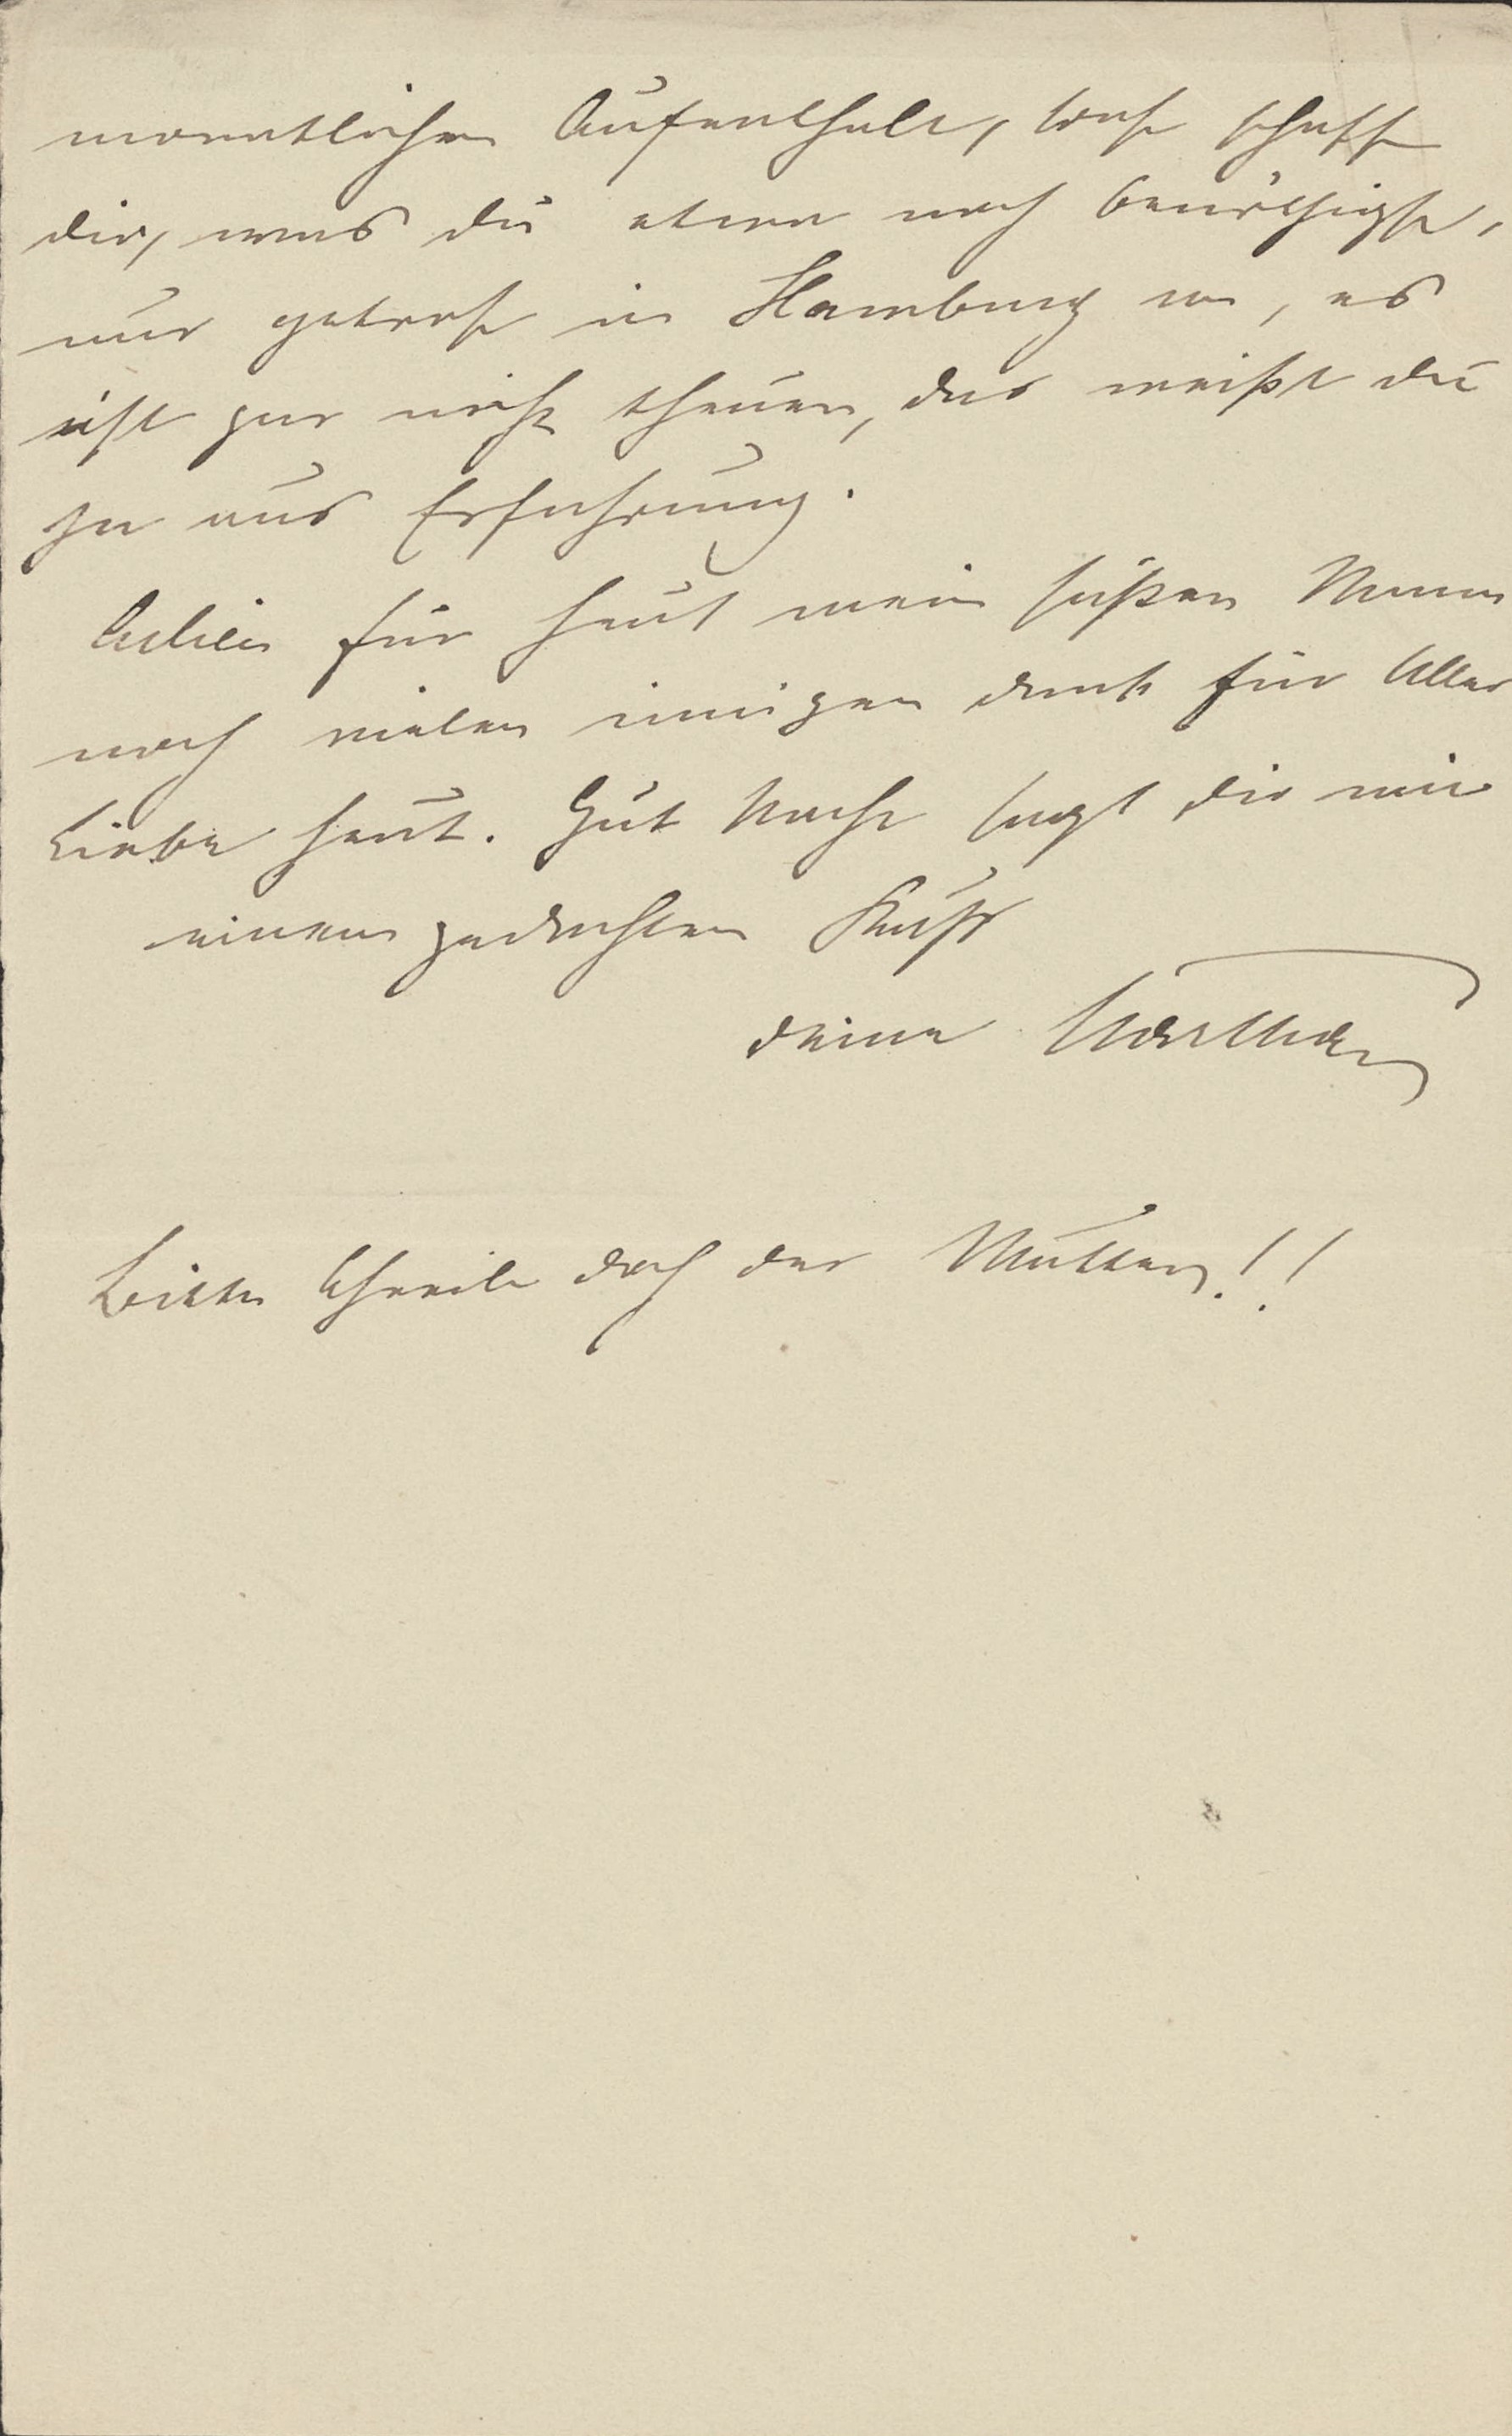 monatlichen Aufenthalt, sonst schaffe
dir, was du etwa noch benöthigst,
nur getrost in Hamburg an, es
ist gar nicht theuer, das weißt du
ja aus Erfahrung.
Adieu für heut mein süßer Mann
noch vielen innigen Dank für Alles
Liebe heut. Gut Nacht sagt dir mit
einem gedachten Kuß
deine
Bitte schreibe doch der Mutter!!